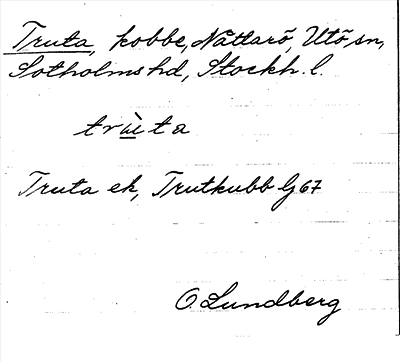 Truta, kobbe, Nåttarö, Utö sn,
Sotholms hd, Stockh. l.
trùta
Truta ek, Trutkubb Lg 67
O. Lundberg